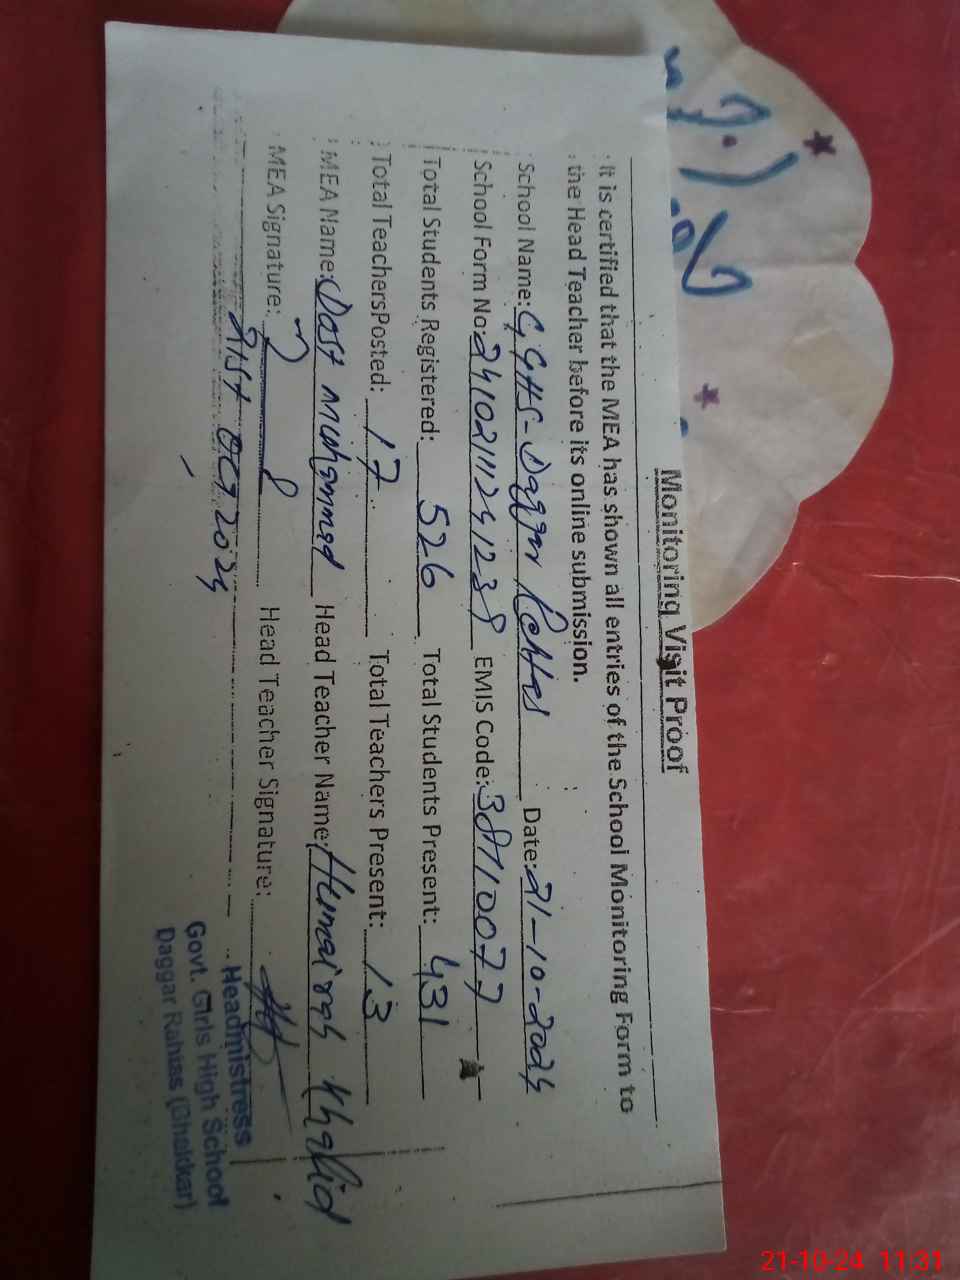 Monitoring Visit Proof
It is certified that the MEA has shown all entries of the School Monitoring Form to
the Head Teacher before its online submission.
School Name: GGHS-Daggar Rehtas Date: 21-10-2024
School Form No: EMIS Code: 38110077
Total Students Registered: 526 Total Students Present: 431
Total TeachersPosted: 17 Total Teachers Present: 13
MEA Name: Dost Muhammad Head Teacher Name: Humairah Khalid
MEA Signature: Head Teacher Signature:
21st OCT 2024
Headmistress
Govt. Girls High School
Daggar Rahtas (Bhakkar)
21-10-24 11:31